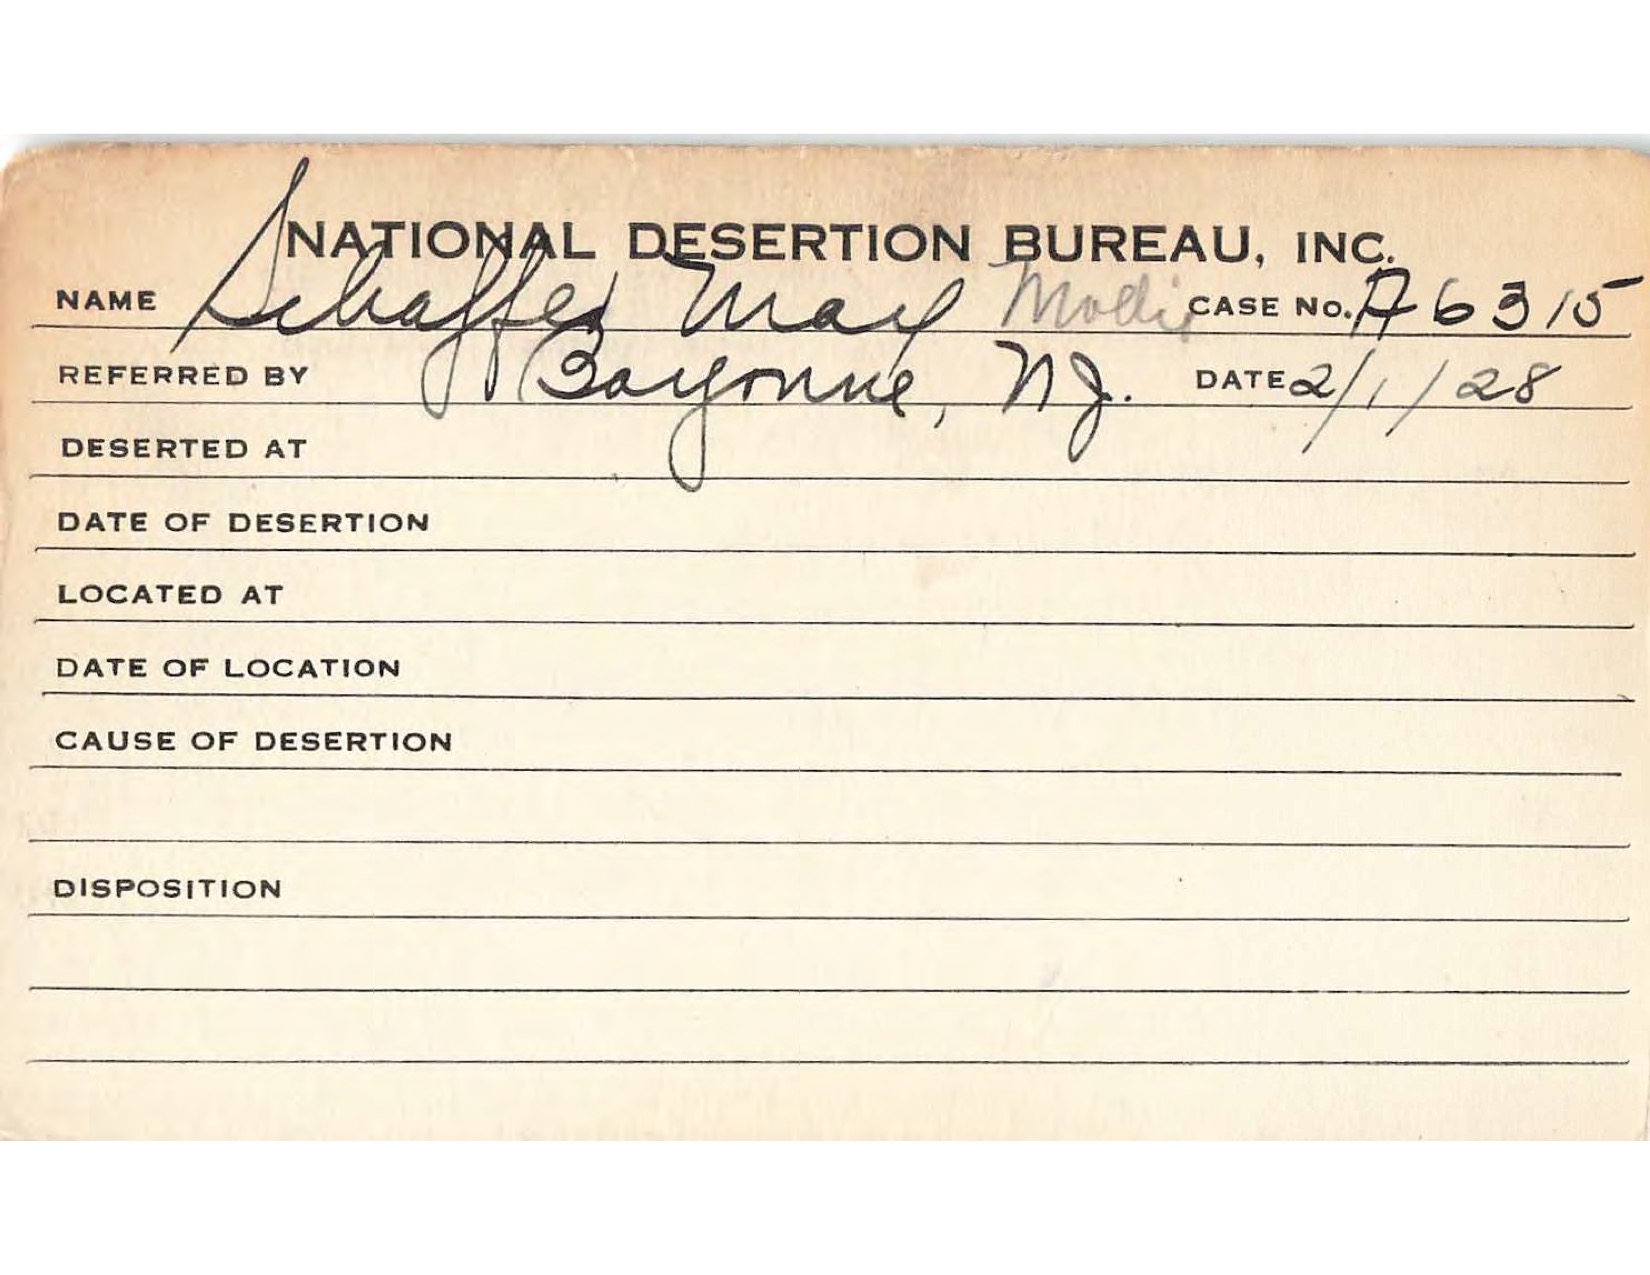 NATIONAL DESERTION BUREAU, INC.
NAME Schaffer Max Mollie CASE NO. A6315
REFERRED BY Bayonne, NJ. DATE 2/1/28
DESERTED AT
DATE OF DESERTION
LOCATED AT
DATE OF LOCATION
CAUSE OF DESERTION
DISPOSITION